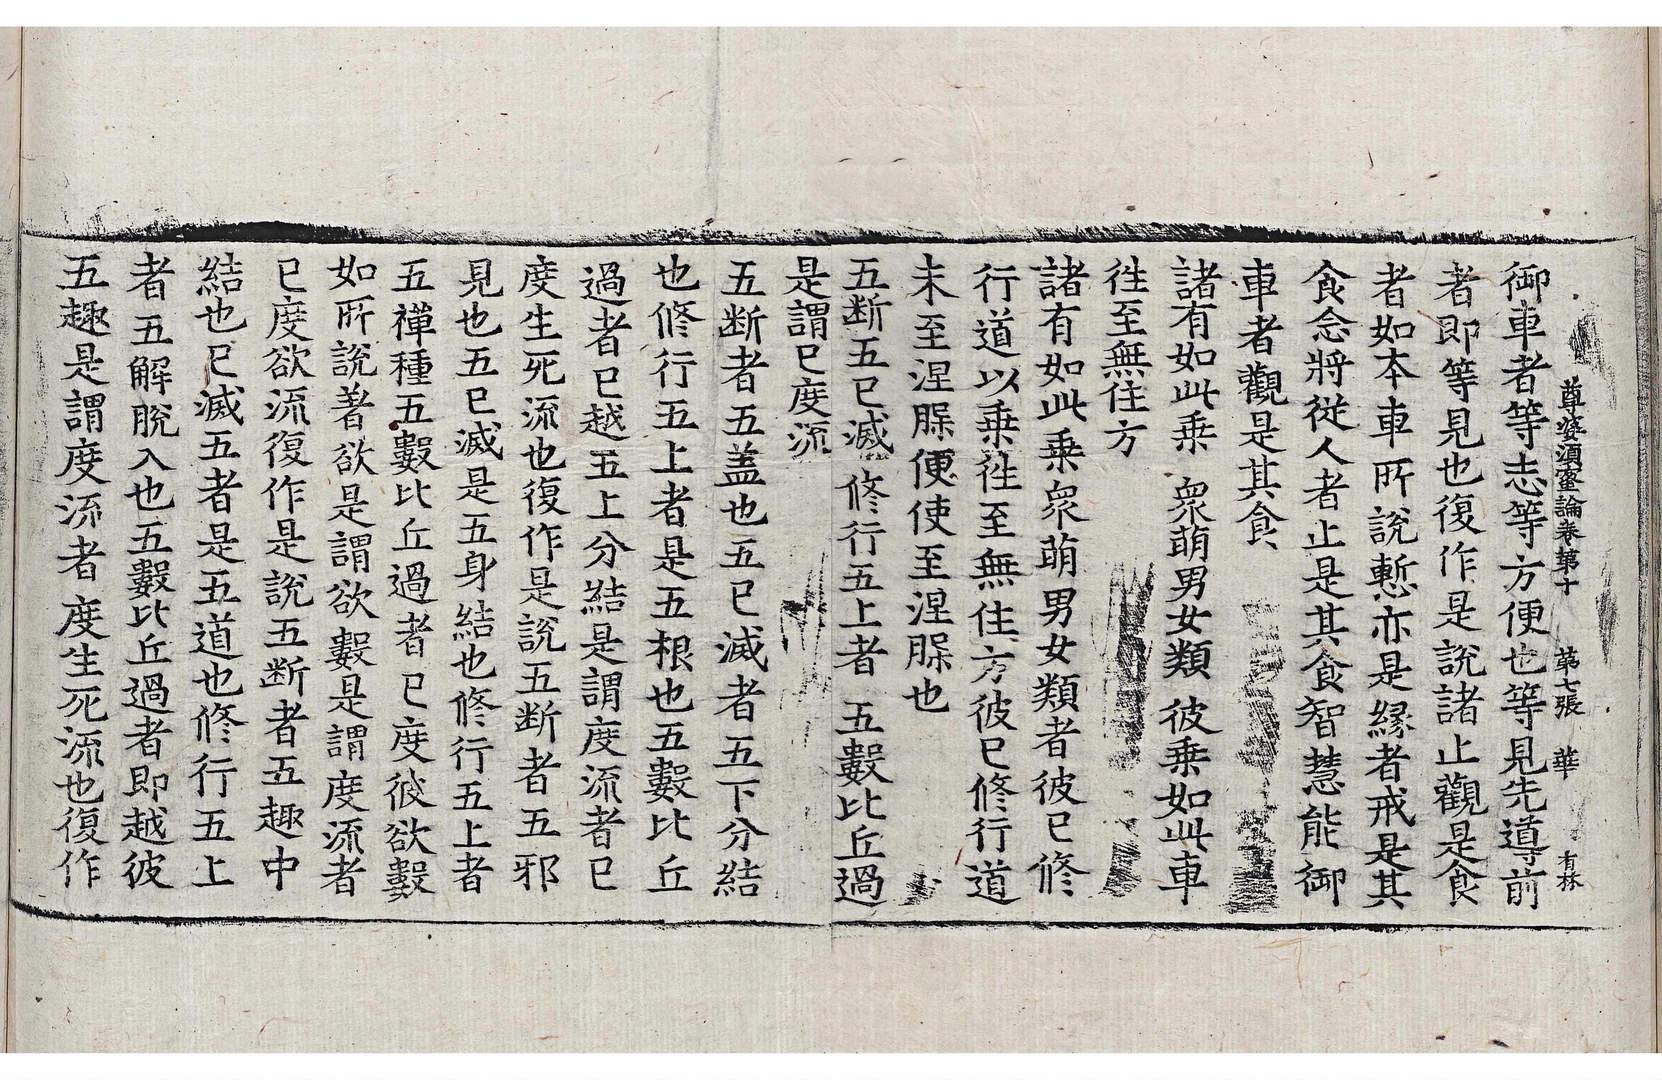 尊婆須蜜論卷第十 第七張 華 有林
御車者等志等方便也等見先導前
者即等見也復作是說諸止觀是食
者如本車所說慙亦是縁者戒是其
食念將從人者止是其食智慧能御
車者觀是其食
諸有如此乗 衆萌男女類 彼乗如此車
徃至無住方
諸有如此乗衆萌男女類者彼已修
行道以乗徃至無住方彼已修行道
未至涅槃便使至涅槃也
五断五已滅 修行五上者 五數比丘過
是謂已度流
五断者五盖也五已滅者五下分結
也修行五上者是五根也五數比丘
過者已越五上分結是謂度流者已
度生死流也復作是說五断者五邪
見也五已滅是五身結也修行五上者
五禪種五數比丘過者已度彼欲數
如所說著欲是謂欲數是謂度流者
已度欲流復作是說五断者五趣中
結也已滅五者是五道也修行五上
者五解脫入也五數比丘過者即越彼
五趣是謂度流者度生死流也復作